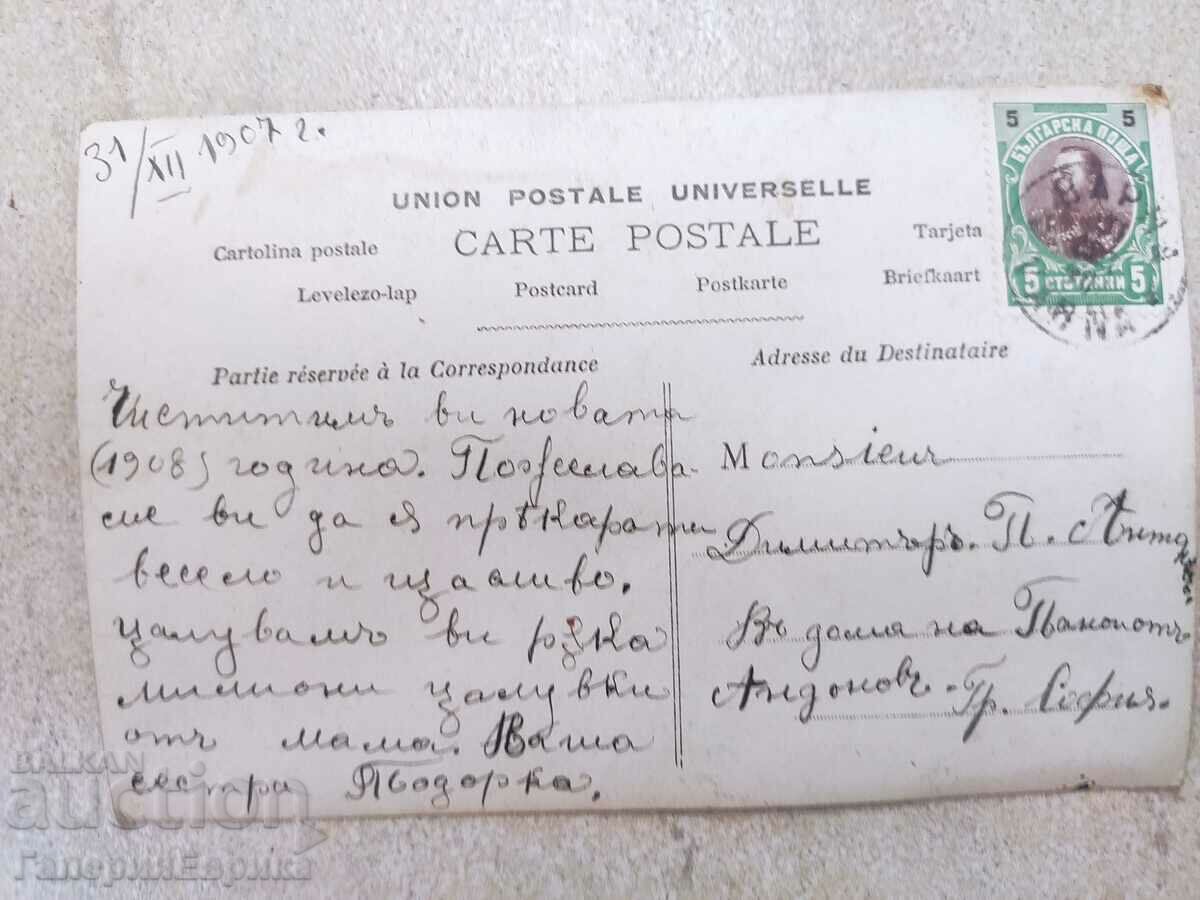 31/XII 1907 г.
5 5
БЪЛГАРСКА ПОЩА
5 СТОТИНКИ 5
UNION POSTALE UNIVERSELLE
CARTE POSTALE
Cartolina postale
Tarjeta
Levelezo-lap
Postcard
Postkarte
Briefkaart
Partie réservée à la Correspondance
Adresse du Destinataire
Честитимъ ви новата
(1908) година. Пожелава-
ме ви да я прѣкарати
весело и щастливо.
Цалувамъ ви рѫка
милиони цалувки
отъ мама. Ваша
сестра Тодорка.
Monsieur
Димитъръ. П.
Въ дома на Панайотъ
Андоновъ. Гр. София.
BALKAN
auction
ГалерияЕврика